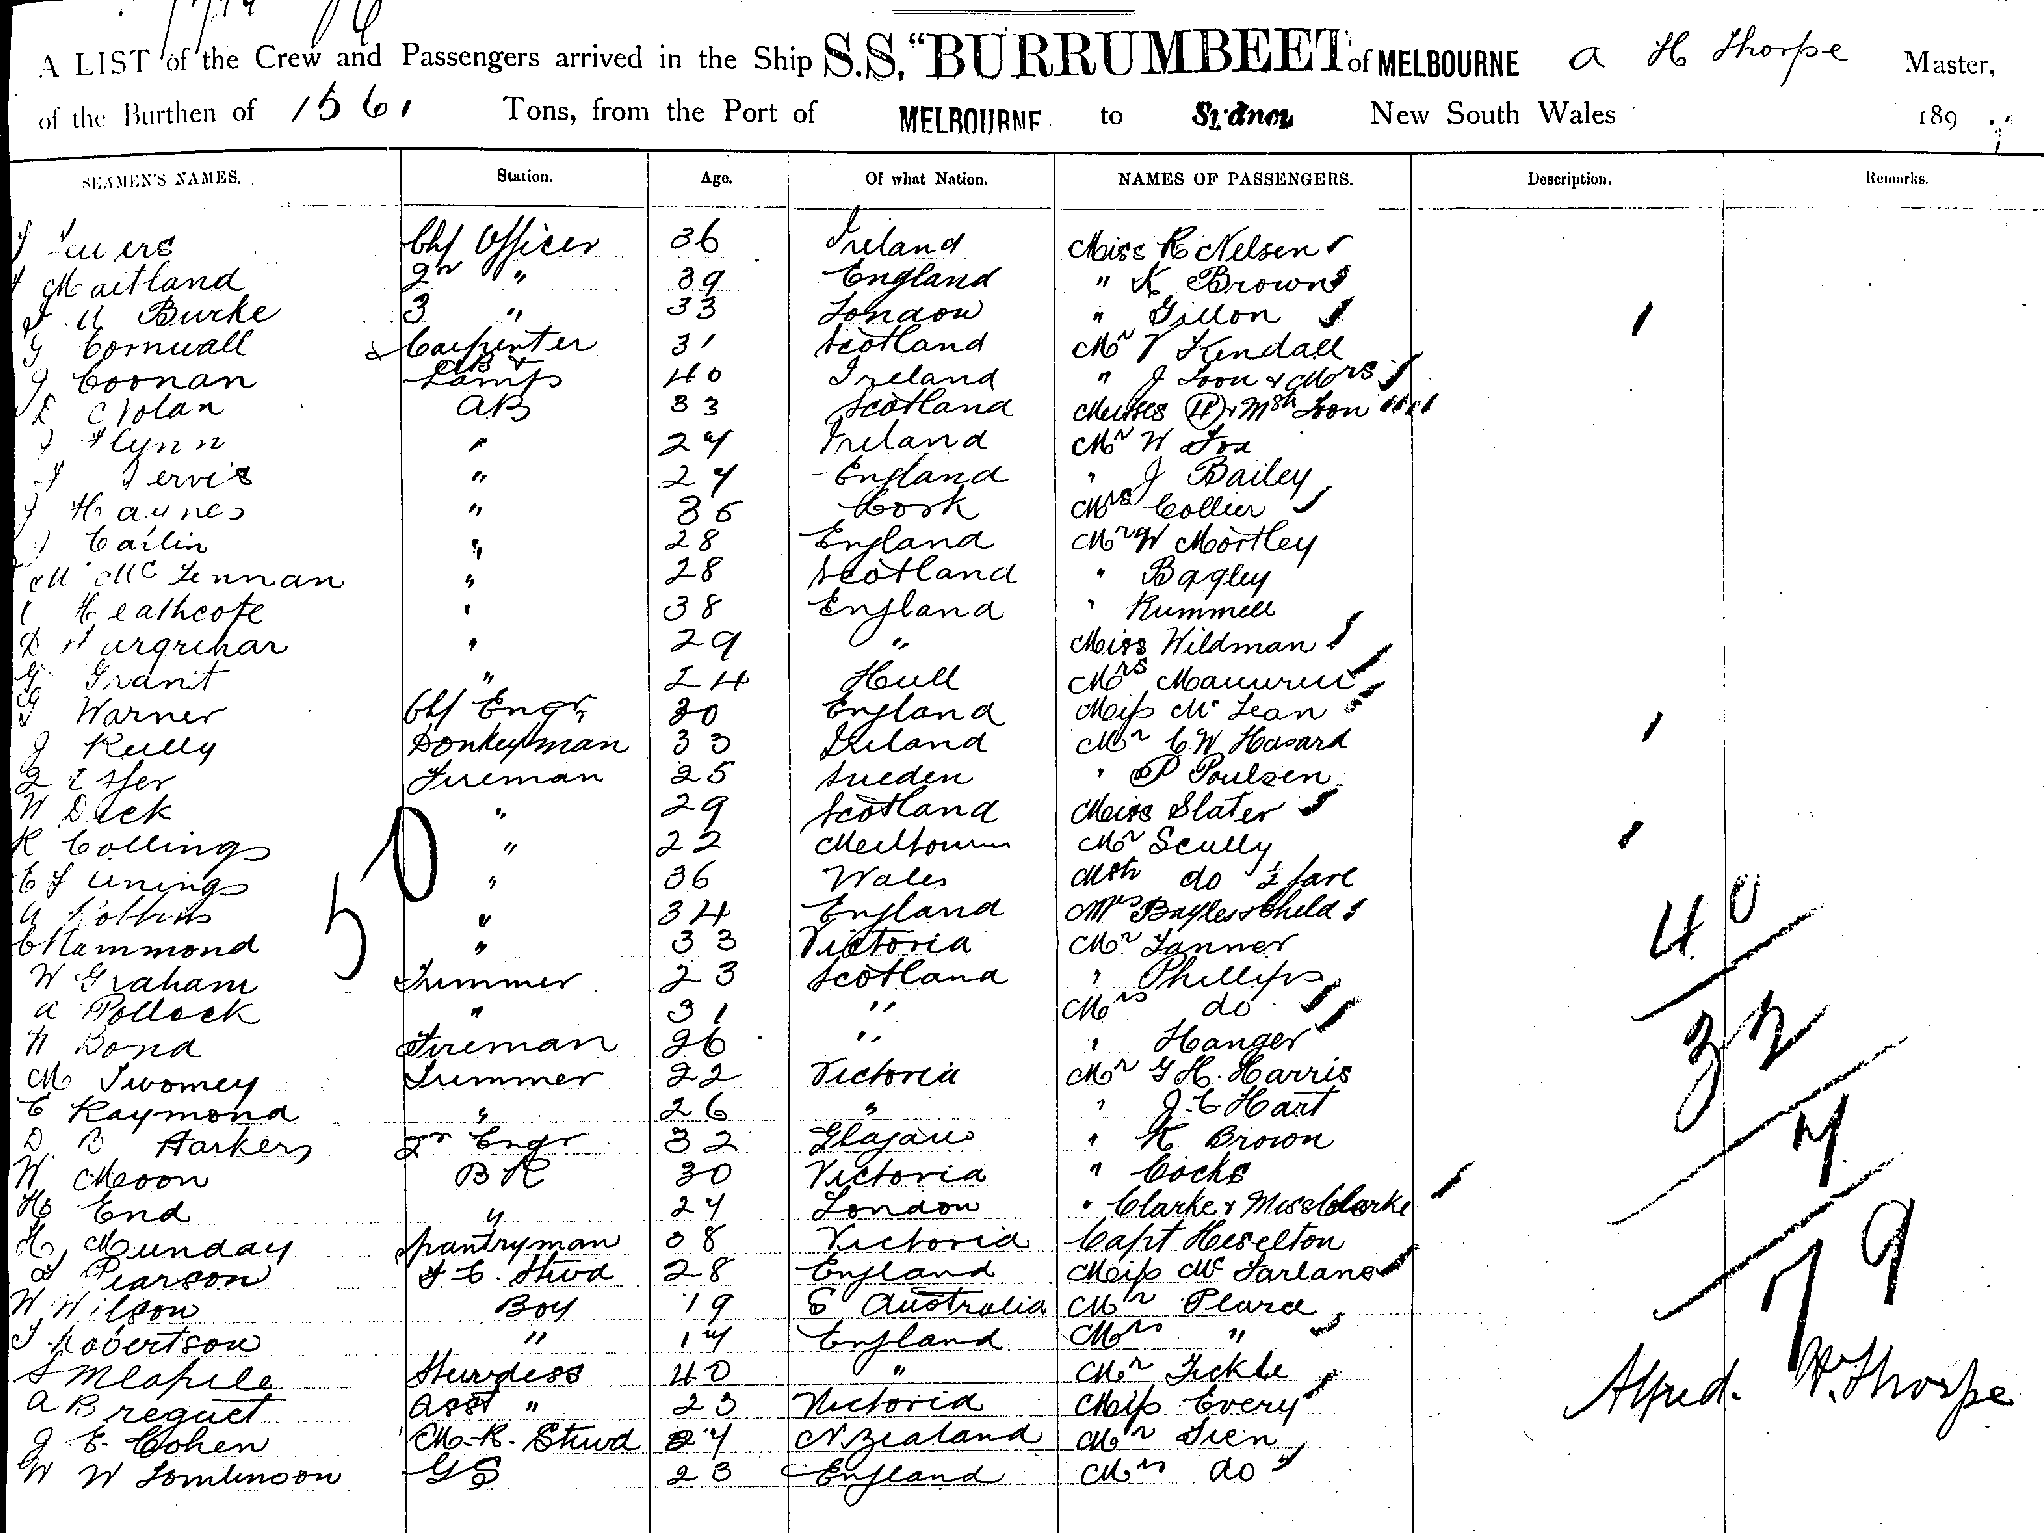 A LIST of the Crew and Passengers arrived in the Ship S.S. "BURRUMBEET of MELBOURNE A H Thorpe Master,
of the Burthen of 1561 Tons, from the Port of MELBOURNE to Sydney New South Wales 189
SEAMEN'S NAMES. Station. Age. Of what Nation. NAMES OF PASSENGERS. Description. Remarks.
Chf Officer 36 Ireland Miss R Nelsen
Maitland 2n " 39 England " K Brown
Burke 3 " 33 London " Gillon
G Cornwall Carpenter 31 Scotland Mr V Kendall
J Coonan AB & Lamps 40 Ireland " J Loon & Mrs
D Nolan AB 33 Scotland Misses (4) & Mstr Loon
J Flynn " 27 Ireland Mr W Fox
Jervis " 27 England " J Bailey
J Haynes " 36 Cork Mrs Collier
Catlin " 28 England Mr W Mortley
M McLennan " 28 Scotland " Bagley
Heathcote " 38 England " Rummell
D Purquhar " 29 " Miss Wildman
G Grant " 24 Hull Mrs
Warner Chf Engr 30 England Miss McLean
J Kelly Donkeyman 33 Ireland Mr C W Hasard
Fireman 25 Sweden " P Poulsen
W Dick " 29 Scotland Miss Slater
R Collings " 22 Melbourne Mr Scully
" 36 Wales Mstr do ½ fare
A Robbins " 34 England Mrs Bayless & Child
C Hammond " 33 Victoria Mr Tanner
W Graham Trimmer 23 Scotland " Phillips
A Pollock " 31 " Mrs do
W Bond Fireman 26 " " Hanger
M Twomey Trimmer 22 Victoria Mr G H Harris
C Raymond " 26 " " J C Hart
D. B Harkers 2n Engr 32 Glasgow " K Brown
W Moon BR 30 Victoria " Cocks
H End " 27 London " Clarke & Miss Clarke
H Munday Pantryman 38 Victoria Capt Heselton
Pearson F. C. Stwd 28 England Miss McFarlane
W Wilson Boy 19 S Australia Mr Pearce
Robertson " 17 England Mrs "
Stewdess 40 " Mr Tickle
A Breguet Asst " 23 Victoria Miss Every
J E Cohen M.R. Stwd 27 N. Zealand Mr Tien
W W Tomlinson GS 23 England Mrs do
50
40
32
7
79
Alfred. H. Thorpe